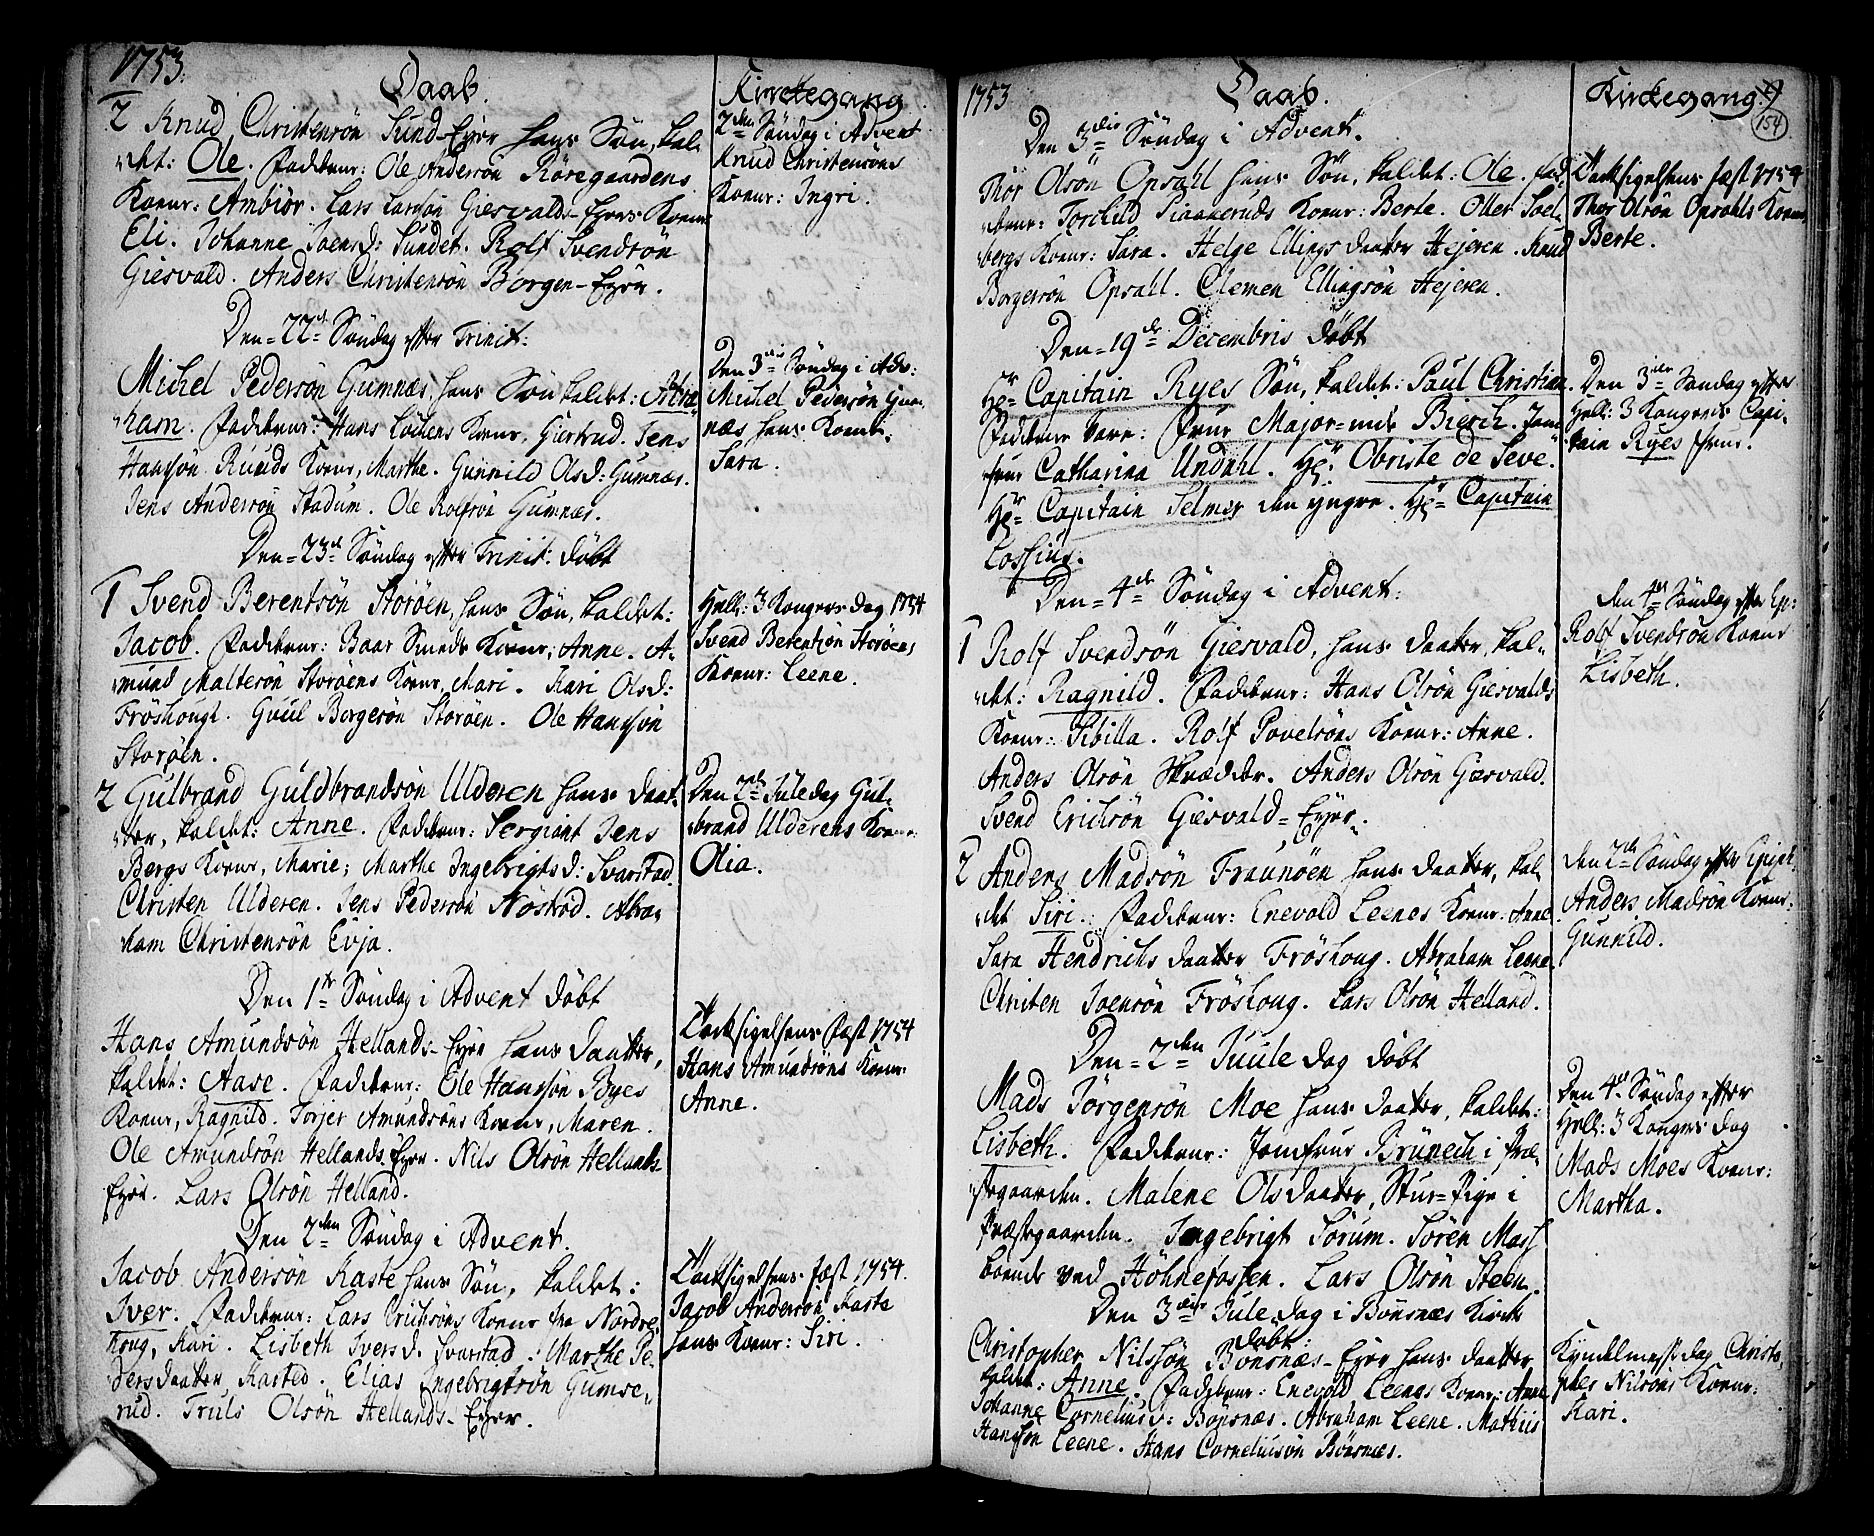 1753.
Daab.
2 Knud Christensön Sund-Eyer hans Sön, kal-
det: Ole. Fadderne: Ole Andersön Röregaardens
Kone: Ambiör. Lars Larsön Giesvalds-Eyers Kone
Eli. Johanne Joensd: Sundet. Rolf Svendsön
Giesvald. Anders Christensön Borgen-Eyer.
Den 22de Söndag efter Trinit:
Michel Pedersön Gumnæs, hans Sön kaldet: Abra-
ham. Fadderne: Hans Lochens Kone, Giertrud. Jens
Hansön Ruuds Kone, Marthe. Gunnild Olsd: Gumnæs.
Jens Andersön Stadum. Ole Rolfsön Gumnæs.
Den 23de Söndag efter Trinit: döbt
1 Svend Berentsön Storöen, hans Sön, kaldet:
Jacob. Fadderne: Baar Smeds Kone, Anne. A-
mund Maltesön Storöens Kone, Mari. Kari Olsd:
Fröshougt. Guul Borgersön Storöen. Ole Hansön
Storöen.
2 Gulbrand Guldbrandsön Ulderen hans Daat-
ter, kaldet: Anne. Fadderne: Sergiant Jens
Bergs Kone, Marie; Marthe Ingebrigtsd: Svarstad.
Christen Ulderen. Jens Pedersön Nöströd. Abra-
ham Christensön Evja.
Den 1te Söndag i Advent döbt
Hans Amundsön Hellands-Eyer hans Daatter,
kaldet: Aase. Fadderne: Ole Hansön Byes
Kone, Ragnild. Torjer Amundsöns Kone, Maren.
Ole Amundsön Hellands Eyer. Nils Olsön Hellands
Eyer. Lars Olsön Helland.
Den 2den Söndag i Advent.
Jacob Andersön Kaste hans Sön, kaldet:
Iver. Fadderne: Lars Erichsöns Kone fra Nordre
Houg, Kari. Lisbeth Iversd. Svarstad. Marthe Pe-
dersdaatter, Kasted. Elias Ingebrigtsön Gumse-
rud. Truls Olsön Hellands-Eyer.
Kirckegang
2den Söndag i Advent
Knud Christensöns
Kone: Ingri.
Den 3die Söndag i Adv:
Michel Pedersön Gum-
næs hans Kone.
Sara.
Hell: 3 Kongers Dag 1754
Svend Berentsön Storöens
Kone: Leene.
Den 2den Jule dag Gul-
brand Ulderens Kone:
Olia.
Tacksigelsens Fæst 1754
Hans Amundsöns Kone:
Anne.
Tacksigelsens fæst 1754.
Jacob Andersön Kaste
hans Kone: Siri.
1753
Daab.
Den 3die Söndag i Advent.
Thor Olsön Opsahl hans Sön, kaldet: Ole. Fad-
derne: Torchild Kone: Berte. Oller Soel-
bergs Kone: Sara. Helge Ellings Daatter Hejeren. Knud
Borgersön Opsahl. Clemen Ellingsön Hejeren.
Den 19de Decembris döbt
Hr Capitain Ryes Sön, kaldet: Paul Christian.
Fadderne vare: Frue Major-inde Biersch. Jom-
frue Catharina Undahl. Hr Obriste de Seve.
Hr Capitain Selmer den yngre. Hr Capitain
Lossius.
Den 4de Söndag i Advent:
1 Rolf Svendsön Giesvald, hans Daatter, kal-
det: Ragnild. Fadderne: Hans Olsön Giesvalds
Kone: Sibilla. Rolf Povelsöns Kone: Anne.
Anders Olsön Skrædder. Anders Olsön Giesvald.
Svend Erichsön Giesvald-Eyer.
2 Anders Madsön Fraunöen hans Daatter, kal-
det Siri. Fadderne: Enevold Leenes Kone: Anne
Sara Hendrichs Daatter Fröshoug. Abraham Leene.
Christen Joensön Fröshoug. Lars Olsön Helland.
Den 2den Juule Dag döbt
Mads Jörgensön Moe hans Daatter, kaldet:
Lisbeth. Fadderne: Jomfrue Brünech i Præ-
stegaarden. Malene Ols Daatter, Stue-Pige i
Præstegaarden. Ingebrigt Sörum. Sören Mass
boende ved Höhnefossen. Lars Olsön Steen.
Den 3die Jule Dag i Bönsnæs Kirke
döbt
Christopher Nilssön Bönsnæs-Eyer hans Daatter
kaldet: Anne. Fadderne: Enevold Leenes Kone: Anne
Johanne Corneliusd: Bönsnæs. Abraham Leene. Mathiis
Hansön Leene. Hans Corneliusön Bönsnæs.
Kirckegang.
154
Tacksigelsens fæst 1754
Thor Olsön Opsahls Kone
Berte.
Den 3die Söndag efter
Hell: 3 Kongers Capi-
tain Ryes Frue.
Den 4de Söndag efter Ep:
Rolf Svendsön Kone
Lisbeth.
Den 2den Söndag efter Epiph
Anders Madsön Kone:
Gunnild.
Den 4de Söndag efter
Hell: 3 Kongers Dag
Mads Moes Kone:
Martha.
Kyndelmesse dag Christo-
phers Nilsöns Kone:
Kari.